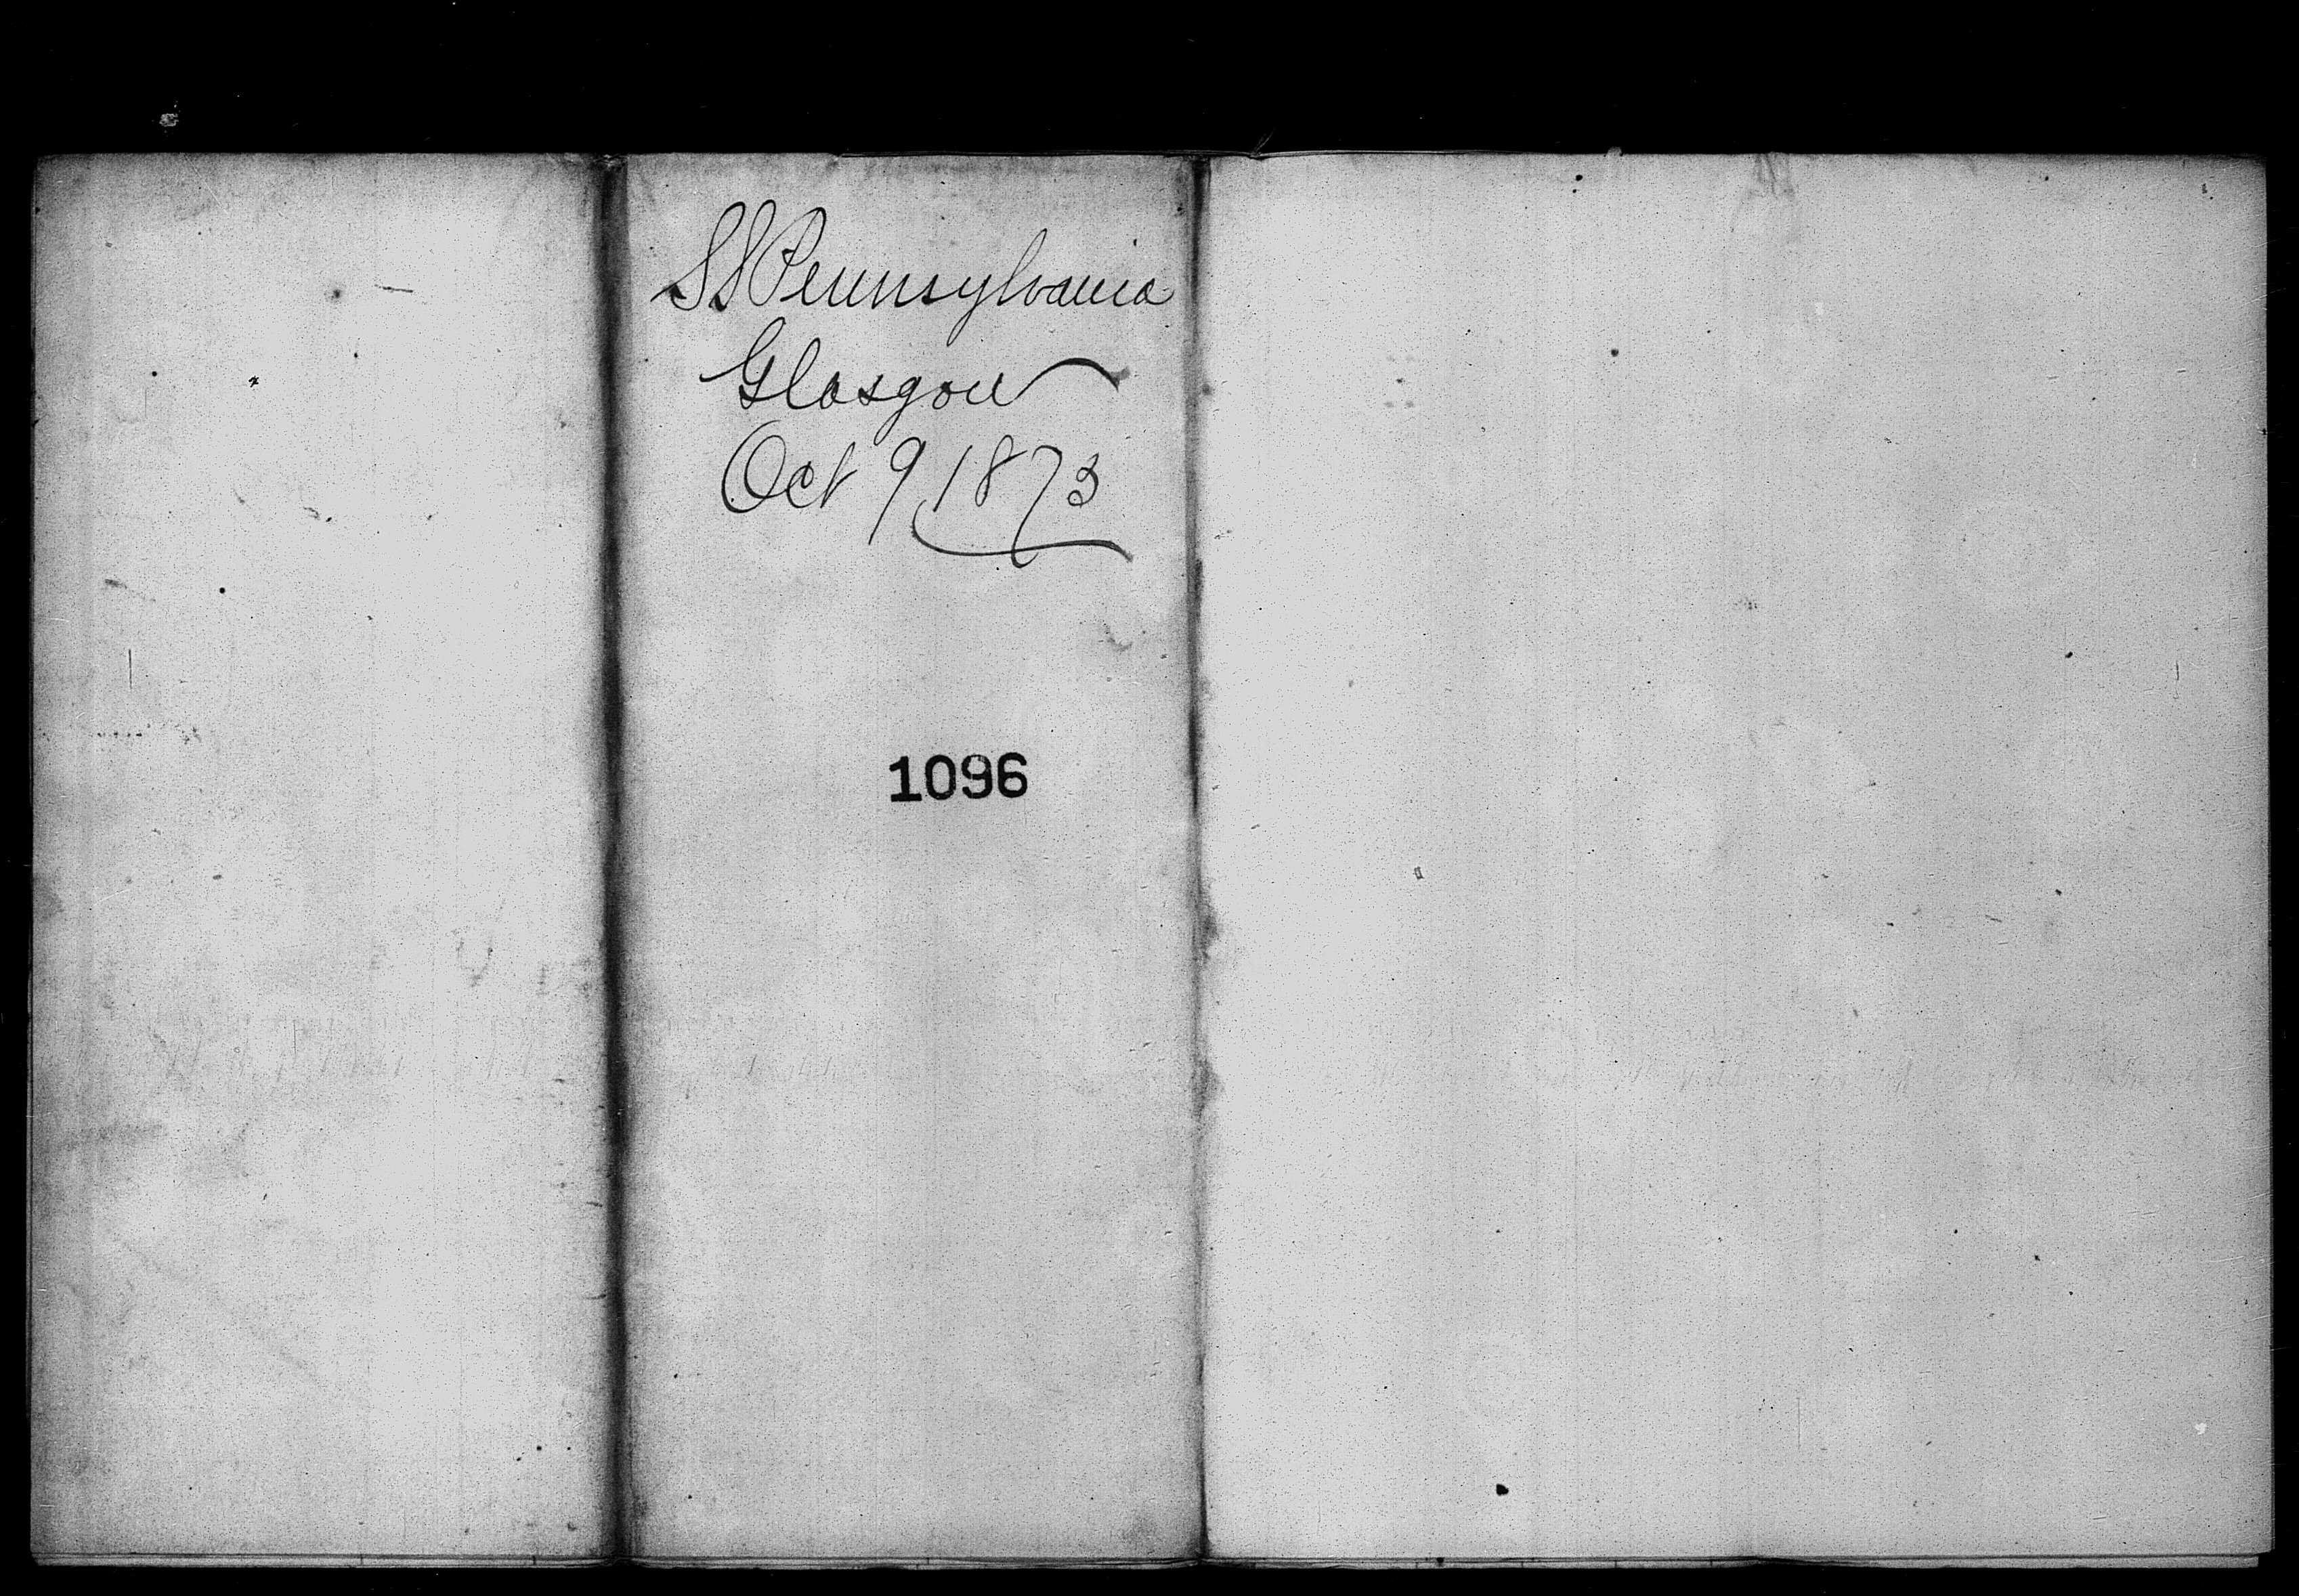 SS Pennsylvania
Glasgow
Oct 9 1873
1096